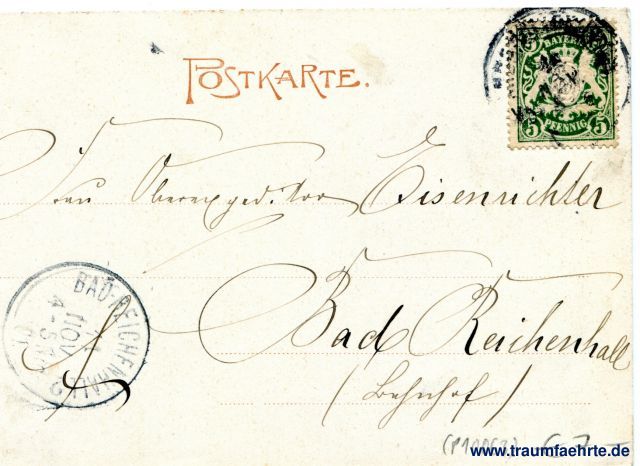 POSTKARTE.
BAYERN
5 PFENNIG 5
Frau Oberexpeditor Eisenrichter
Bad Reichenhall
(Bahnhof)
BAD-REICHENHALL 2
NOV
www.traumfaehrte.de